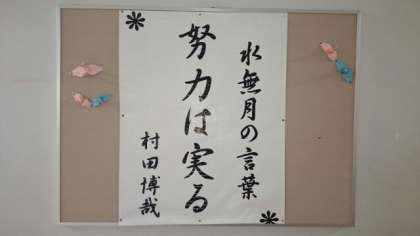 水無月の言葉
努力は実る
村田博哉